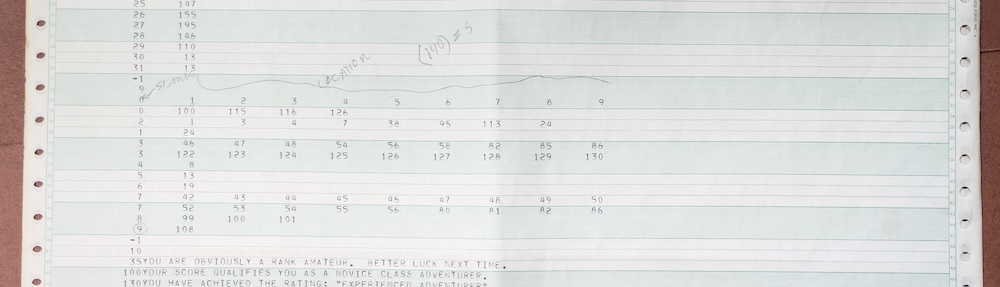 25 147
26 155
27 195
28 146
29 110
30 13
31 13
-1
9
LOCATION
(140) = 5
0 1 2 3 4 5 6 7 8 9
0 100 115 116 126
2 1 3 4 7 38 95 113 24
1 24
3 46 47 48 54 56 58 82 85 86
3 122 123 124 125 126 127 128 129 130
4 8
5 13
6 19
7 42 43 44 45 46 47 48 49 50
7 52 53 54 55 56 80 81 82 86
8 99 100 101
9 108
-1
10
35YOU ARE OBVIOUSLY A RANK AMATEUR. BETTER LUCK NEXT TIME.
100YOUR SCORE QUALIFIES YOU AS A NOVICE CLASS ADVENTURER.
130YOU HAVE ACHIEVED THE RATING: "EXPERIENCED ADVENTURER"